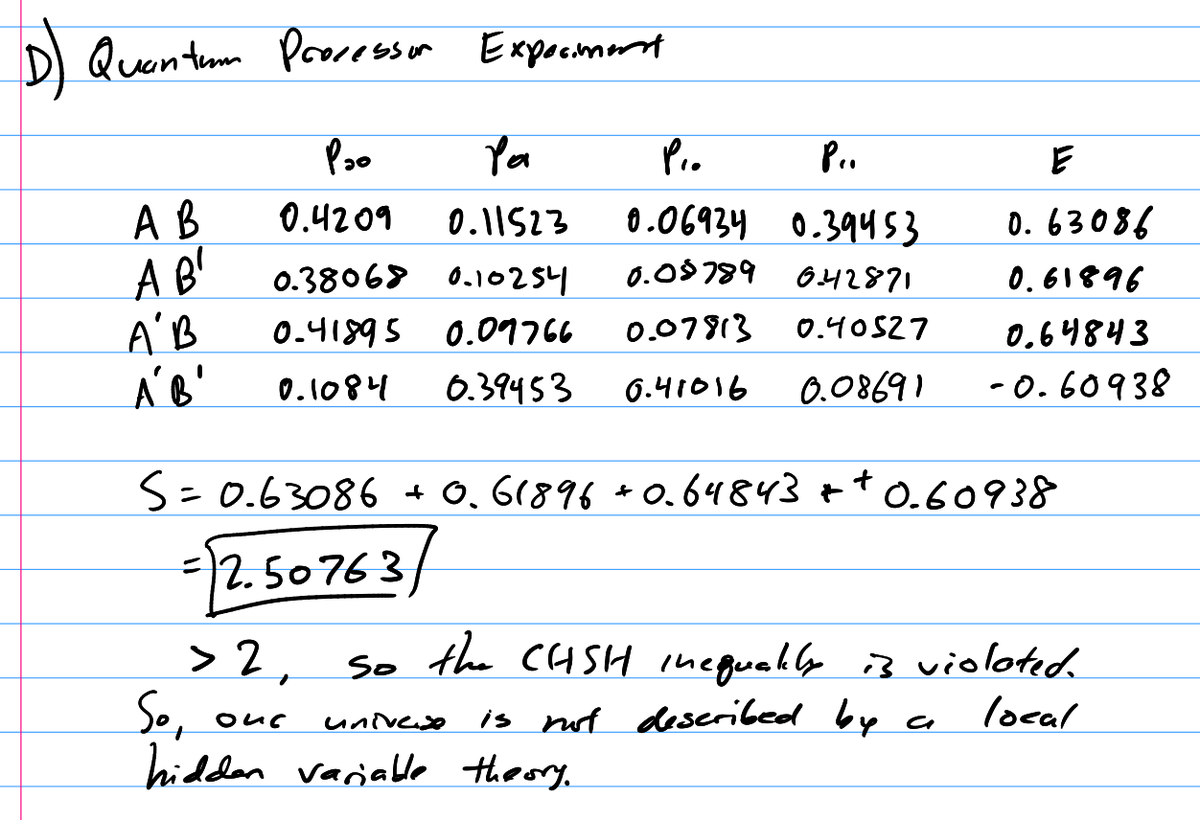 D) Quantum Processor Experiment
P00 P01 P10 P11 E
A B 0.4209 0.11523 0.06934 0.39453 0.63086
A B' 0.38068 0.10254 0.08789 0.42871 0.61896
A' B 0.41895 0.09766 0.07813 0.40527 0.64843
A' B' 0.1084 0.39453 0.41016 0.08691 -0.60938
S = 0.63086 + 0.61896 + 0.64843 + + 0.60938
= 2.50763
> 2, so the CHSH inequality is violated.
So, our universe is not described by a local
hidden variable theory.